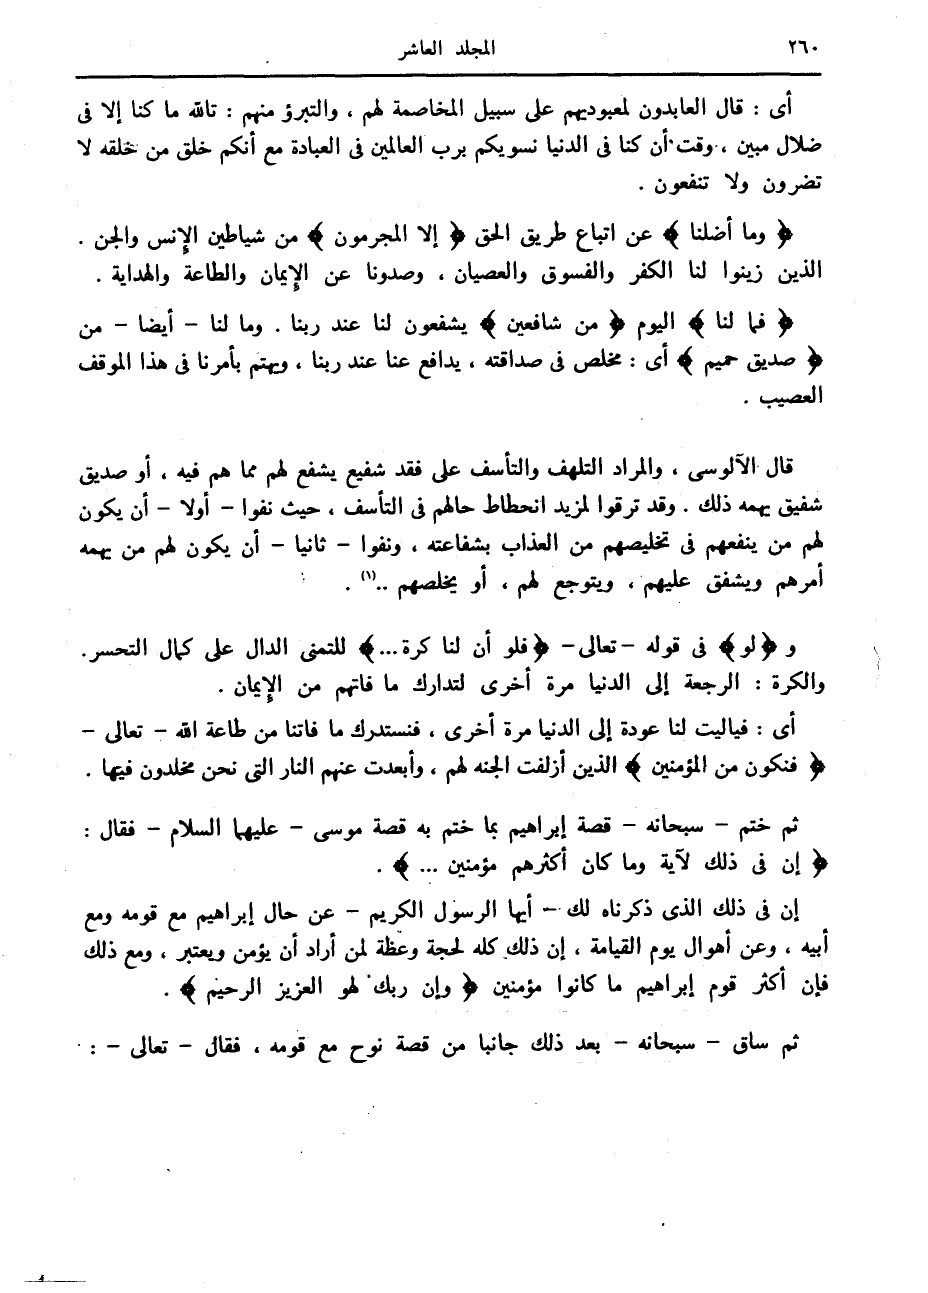 ٢٦٠ المجلد العاشر
أى : قال العابدون لمعبوديهم على سبيل المخاصمة لهم ، والتبرؤ منهم : تالله ما كنا إلا فى
ضلال مبين ، وقت أن كنا فى الدنيا نسويكم برب العالمين فى العبادة مع أنكم خلق من خلقه لا
تضرون ولا تنفعون .
﴿ وما أضلنا ﴾ عن اتباع طريق الحق ﴿ إلا المجرمون ﴾ من شياطين الإنس والجن .
الذين زينوا لنا الكفر والفسوق والعصيان ، وصدونا عن الإيمان والطاعة والهداية .
﴿ فما لنا ﴾ اليوم ﴿ من شافعين ﴾ يشفعون لنا عند ربنا . وما لنا – أيضا – من
﴿ صديق حميم ﴾ أى : مخلص فى صداقته ، يدافع عنا عند ربنا ، ويهتم بأمرنا فى هذا الموقف
العصيب .
قال الآلوسى ، والمراد التلهف والتأسف على فقد شفيع يشفع لهم مما هم فيه ، أو صديق
شفيق يهمه ذلك . وقد ترقوا لمزيد انحطاط حالهم فى التأسف ، حيث نفوا – أولا – أن يكون
لهم من ينفعهم فى تخليصهم من العذاب بشفاعته ، ونفوا – ثانيا – أن يكون لهم من يهمه
أمرهم ويشفق عليهم ، ويتوجع لهم ، أو يخلصهم ..(١) .
و ﴿لو﴾ فى قوله –تعالى– ﴿فلو أن لنا كرة...﴾ للتمنى الدال على كمال التحسر.
والكرة : الرجعة إلى الدنيا مرة أخرى لتدارك ما فاتهم من الإيمان .
أى : فياليت لنا عودة إلى الدنيا مرة أخرى ، فنستدرك ما فاتنا من طاعة الله – تعالى –
﴿ فنكون من المؤمنين ﴾ الذين أزلفت الجنه لهم ، وأبعدت عنهم النار التى نحن مخلدون فيها .
ثم ختم – سبحانه – قصة إبراهيم بما ختم به قصة موسى – عليهما السلام – فقال :
﴿ إن فى ذلك لآية وما كان أكثرهم مؤمنين ... ﴾ .
إن فى ذلك الذى ذكرناه لك – أيها الرسول الكريم – عن حال إبراهيم مع قومه ومع
أبيه ، وعن أهوال يوم القيامة ، إن ذلك كله لحجة وعظة لمن أراد أن يؤمن ويعتبر ، ومع ذلك
فإن أكثر قوم إبراهيم ما كانوا مؤمنين ﴿ وإن ربك لهو العزيز الرحيم ﴾ .
ثم ساق – سبحانه – بعد ذلك جانبا من قصة نوح مع قومه ، فقال – تعالى – :